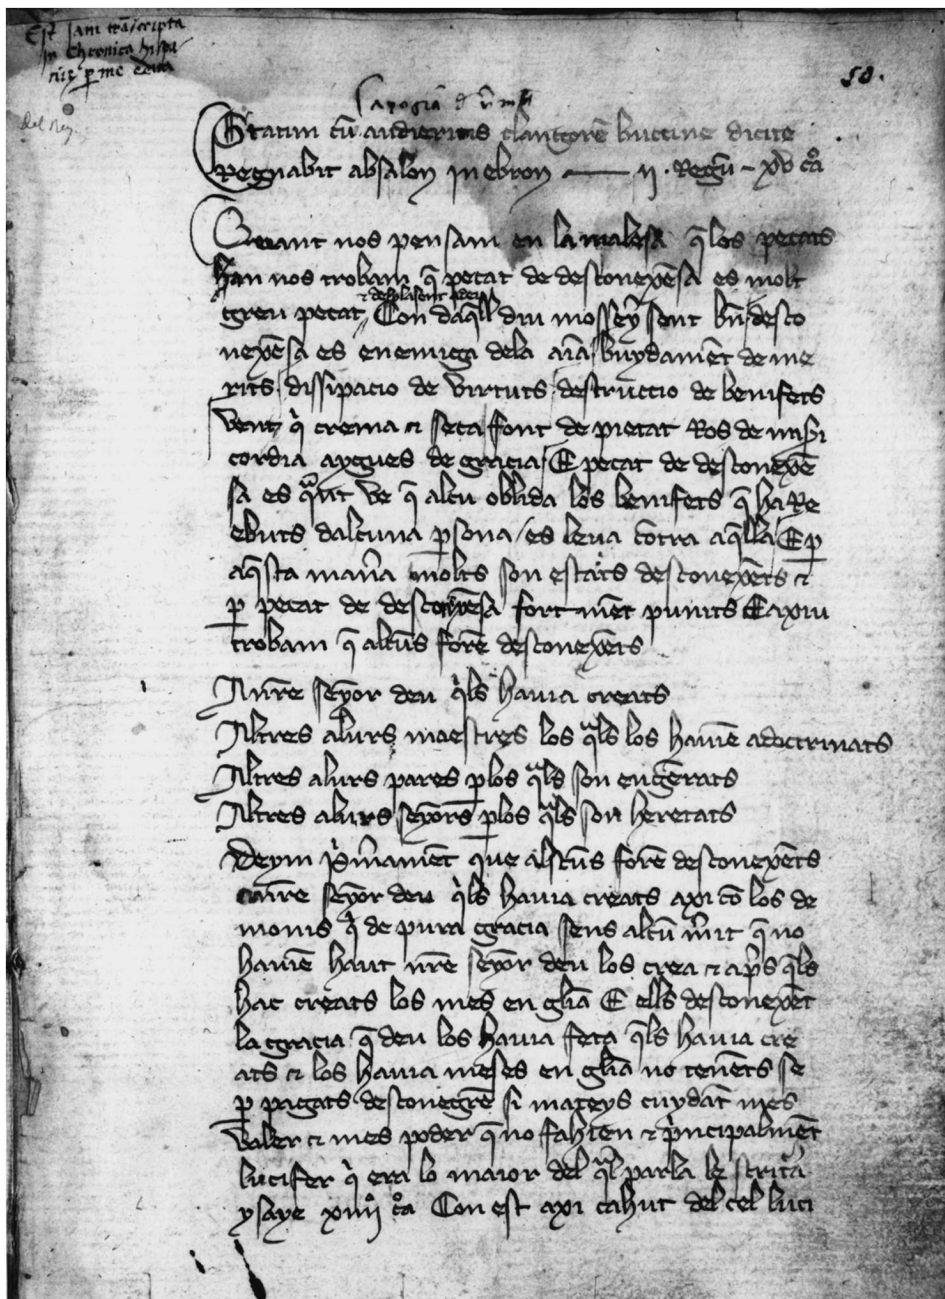 Est jam trãscripta
in Chronica hispa
p me
del Rey.
58.
Statim cũ audieritis clangorẽ buccine dicite
Regnabit absalon in ebron — ij. Regũ – xv cº
Quant nos pensam en la malesa q̃ los pecats
han nos trobam q̃ pecat de desconexẽsa es molt
greu pecat / Con daq̃ll diu mossẽyr sent bñ / desco
nexẽsa es enemiga dela aĩa / buydamẽt de me
rits / dissipacio de virtuts / destruccio de benifets
vent / qͥ crema ⁊ seca font de pietat Ros de mis̃i
cordia aygues de gracia / E pecat de desconexẽ
sa es qᵃnt ve q̃ alcu oblida los benifets q̃ ha Re
ebuts dalcuna ꝑsona / es leva cõtra aq̃lla / E ꝑ
aq̃sta mañra molts son estats desconexẽts ⁊
ꝑ pecat de desconexẽsa fort mẽt punits E axiu
trobam q̃ alcũs forẽ desconexẽts
A nr̃e seyõr deu qͥls havia creats
Altres alurs maestres los qᵃls los haviẽ adoctrinats
Altres alurs pares ꝑlos qᵃls son engẽrats
Altres alurs seyõrs ꝑlos qᵃls son heretats
Deym pͥm̃amẽt que alscũs forẽ desconexẽts
a nr̃e seyõr deu qͥls havia creats axi cõ los de
monis qͥ de pura gracia sens alcũ m̃it q̃ no
haviẽ haut nr̃e seyõr deu los crea ⁊ ap̃s q̃ls
hac creats los mes en glĩa E ells desconexẽt
la gracia q̃ deu los havia feta q̃ls havia cre
ats ⁊ los havia meses en glĩa no tenẽts se
ꝑ pagats desconegrẽ si mateys cuydãt mes
valer ⁊ mes poder q̃ no fahien ⁊ pͥncipalmẽt
lucifer qͥ era lo maior del qᵃl parla le scritᵃ
ysaye xiiijº cº Con est axi cahut del cel luci